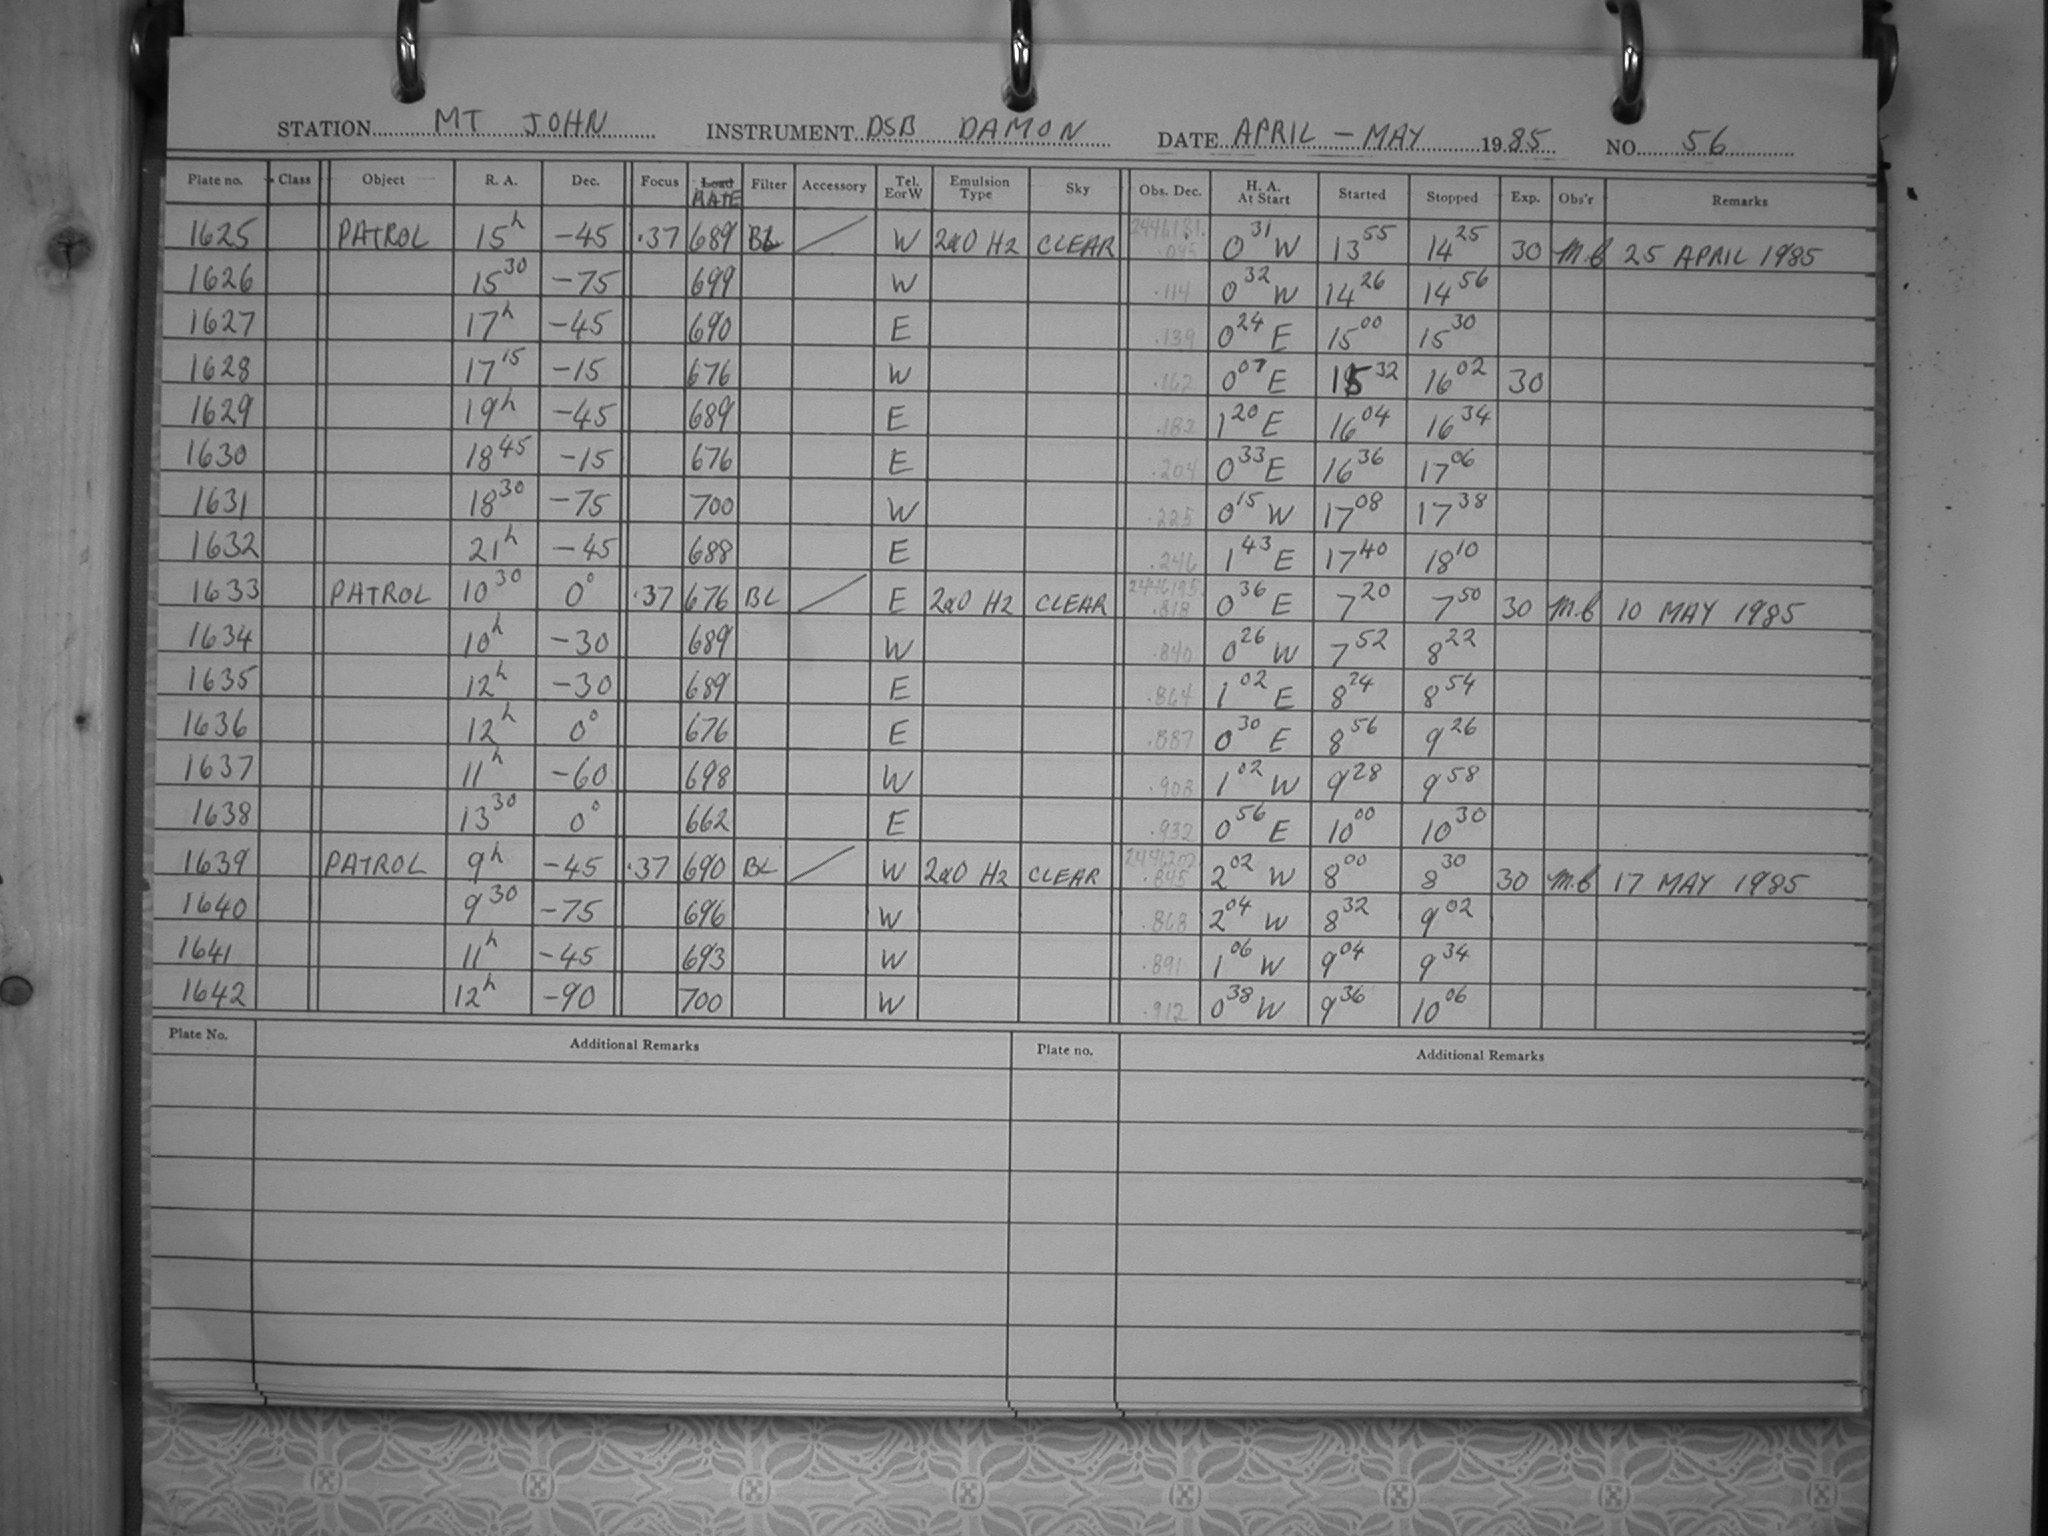 STATION MT JOHN INSTRUMENT DSB DAMON DATE APRIL - MAY 1985 NO. 56
Plate no. Class Object R. A. Dec. Focus Load RATE Filter Accessory Tel. E or W Emulsion Type Sky Obs. Dec. H. A. At Start Started Stopped Exp. Obs'r Remarks
1625 PATROL 15h -45 .37 689 BL W 2aO H2 CLEAR 0 31 W 13 55 14 25 30 M.B 25 APRIL 1985
1626 15 30 -75 699 W .114 0 32 W 14 26 14 56
1627 17h -45 690 E .139 0 24 E 15 00 15 30
1628 17 15 -15 676 W .162 0 07 E 15 32 16 02 30
1629 19h -45 689 E .182 1 20 E 16 04 16 34
1630 18 45 -15 676 E .204 0 33 E 16 36 17 06
1631 18 30 -75 700 W .225 0 15 W 17 08 17 38
1632 21h -45 688 E .246 1 43 E 17 40 18 10
1633 PATROL 10 30 0° .37 676 BL E 2aO H2 CLEAR 2446195 .818 0 36 E 7 20 7 50 30 M.B 10 MAY 1985
1634 10h -30 689 W .840 0 26 W 7 52 8 22
1635 12h -30 689 E .864 1 02 E 8 24 8 54
1636 12h 0° 676 E .887 0 30 E 8 56 9 26
1637 11h -60 698 W .908 1 02 W 9 28 9 58
1638 13 30 0° 662 E .932 0 56 E 10 00 10 30
1639 PATROL 9h -45 .37 690 BL W 2aO H2 CLEAR 2446202 .845 2 02 W 8 00 8 30 30 M.B 17 MAY 1985
1640 9 30 -75 696 W .868 2 04 W 8 32 9 02
1641 11h -45 693 W .891 1 06 W 9 04 9 34
1642 12h -90 700 W .912 0 38 W 9 36 10 06
Plate No. Additional Remarks Plate no. Additional Remarks